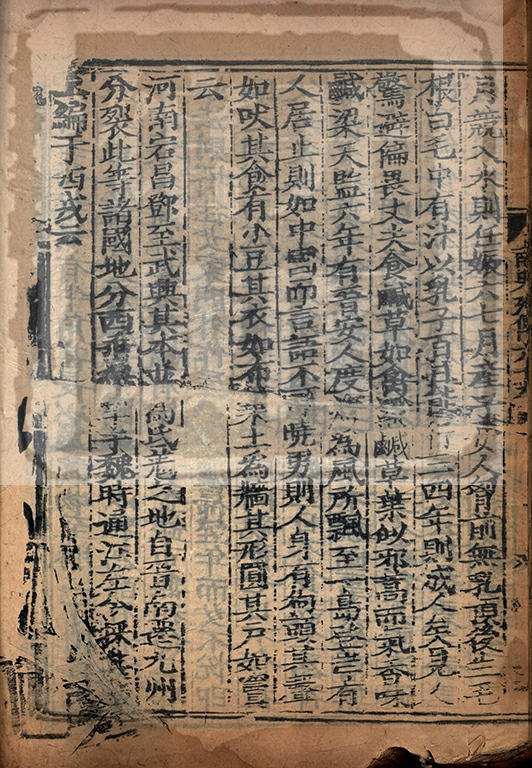 月競入水則任娠六七月產子女人胷前無乳頂後生毛
根白毛中有汁以乳子百日能行三四年則成人矣見人
驚避偏畏丈夫食鹹草如禽獸鹹草葉似邪蒿而氣香味
鹹梁天監六年有晉安人度海為風所飄至一島登岸有
人居止則如中國而言語不可曉男則人身有狗頭其聲
如吠其食有小豆其衣如布築土為牆其形圓其戶如竇
云
河南宕昌鄧至武興其本並為氐羌之地自晉南遷九州
分裂此等諸國地分西垂于魏時通江左今採其
編于西戎云